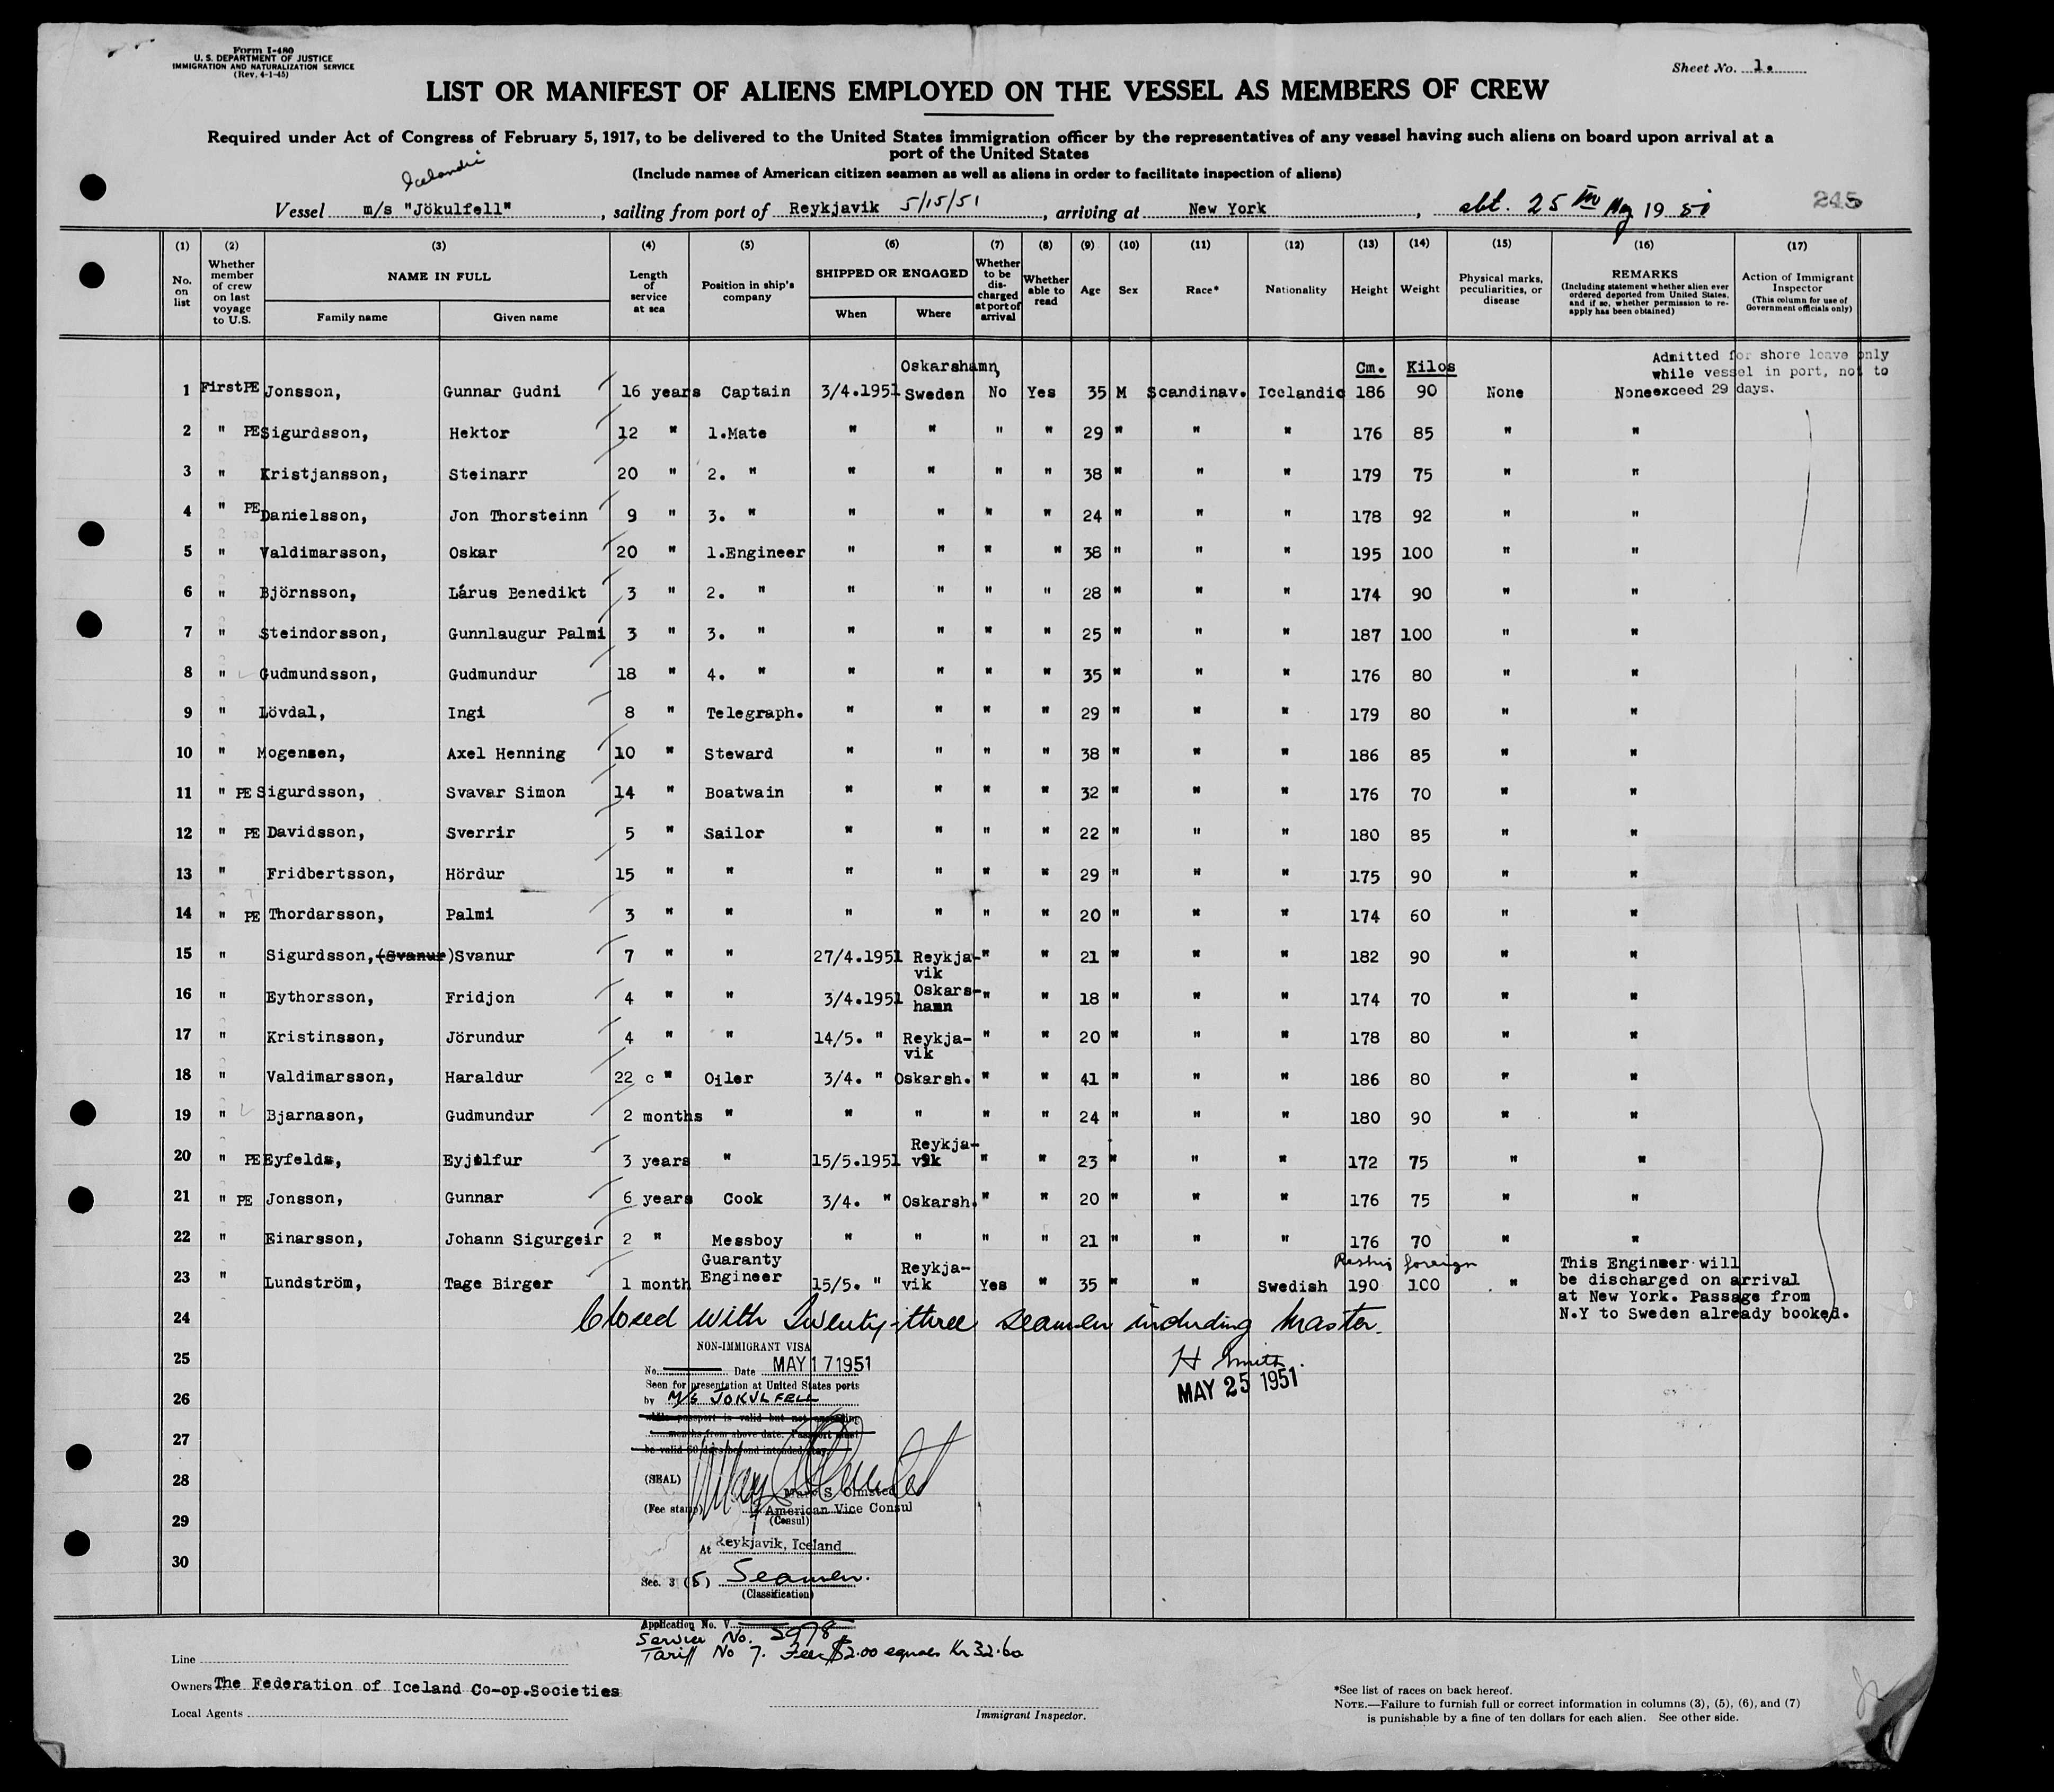 Form I-480
U. S. DEPARTMENT OF JUSTICE
IMMIGRATION AND NATURALIZATION SERVICE
(Rev. 4-1-45)
Sheet No. 1.
LIST OR MANIFEST OF ALIENS EMPLOYED ON THE VESSEL AS MEMBERS OF CREW
Required under Act of Congress of February 5, 1917, to be delivered to the United States immigration officer by the representatives of any vessel having such aliens on board upon arrival at a
port of the United States
(Include names of American citizen seamen as well as aliens in order to facilitate inspection of aliens)
Icelandic
Vessel m/s "Jökulfell", sailing from port of Reykjavik 5/15/51, arriving at New York, abt. 25th May 1951
245
(1) (2) (3) (4) (5) (6) (7) (8) (9) (10) (11) (12) (13) (14) (15) (16) (17)
No. on list
Whether member of crew on last voyage to U.S.
NAME IN FULL
Family name
Given name
Length of service at sea
Position in ship's company
SHIPPED OR ENGAGED
When
Where
Whether to be discharged at port of arrival
Whether able to read
Age
Sex
Race*
Nationality
Height
Weight
Physical marks, peculiarities, or disease
REMARKS
(Including statement whether alien ever ordered deported from United States, and if so, whether permission to re-apply has been obtained)
Action of Immigrant Inspector
(This column for use of Government officials only)
Cm. Kilos
Admitted for shore leave only
while vessel in port, not to
exceed 29 days.
1 First PE Jonsson, Gunnar Gudni 16 years Captain 3/4.1951 Oskarshamn, Sweden No Yes 35 M Scandinav. Icelandic 186 90 None None
2 " PE Sigurdsson, Hektor 12 " 1.Mate " " " " 29 " " " 176 85 " "
3 " Kristjansson, Steinarr 20 " 2. " " " " " 38 " " " 179 75 " "
4 " PE Danielsson, Jon Thorsteinn 9 " 3. " " " " " 24 " " " 178 92 " "
5 " Valdimarsson, Oskar 20 " 1.Engineer " " " " 38 " " " 195 100 " "
6 " Björnsson, Lárus Benedikt 3 " 2. " " " " " 28 " " " 174 90 " "
7 " Steindorsson, Gunnlaugur Palmi 3 " 3. " " " " " 25 " " " 187 100 " "
8 " Gudmundsson, Gudmundur 18 " 4. " " " " " 35 " " " 176 80 " "
9 " Lövdal, Ingi 8 " Telegraph. " " " " 29 " " " 179 80 " "
10 " Mogensen, Axel Henning 10 " Steward " " " " 38 " " " 186 85 " "
11 " PE Sigurdsson, Svavar Simon 14 " Boatwain " " " " 32 " " " 176 70 " "
12 " PE Davidsson, Sverrir 5 " Sailor " " " " 22 " " " 180 85 " "
13 " Fridbertsson, Hördur 15 " " " " " " 29 " " " 175 90 " "
14 " PE Thordarsson, Palmi 3 " " " " " " 20 " " " 174 60 " "
15 " Sigurdsson, (Svanur) Svanur 7 " " 27/4.1951 Reykja-vik " " 21 " " " 182 90 " "
16 " Eythorsson, Fridjon 4 " " 3/4.1951 Oskars-hamn " " 18 " " " 174 70 " "
17 " Kristinsson, Jörundur 4 " " 14/5. " Reykja-vik " " 20 " " " 178 80 " "
18 " Valdimarsson, Haraldur 22 c " Oiler 3/4. " Oskarsh. " " 41 " " " 186 80 " "
19 " Bjarnason, Gudmundur 2 months " " " " " 24 " " " 180 90 " "
20 " PE Eyfelds, Eyjólfur 3 years " 15/5.1951 Reykja-vik " " 23 " " " 172 75 " "
21 " PE Jonsson, Gunnar 6 years Cook 3/4. " Oskarsh. " " 20 " " " 176 75 " "
22 " Einarsson, Johann Sigurgeir 2 " Messboy " " " " 21 " " " 176 70 " "
23 " Lundström, Tage Birger 1 month Guaranty Engineer 15/5. " Reykja-vik Yes " 35 " " Swedish 190 100 "
Reship foreign
This Engineer will
be discharged on arrival
at New York. Passage from
N.Y to Sweden already booked.
24
Closed with Twenty-three seamen including Master.
H Smith.
MAY 25 1951
25
26
27
28
29
30
NON-IMMIGRANT VISA
No. Date MAY 17 1951
Seen for presentation at United States ports
by M/S JOKULFELL
while passport is valid but not exceeding
months from above date. Passport must
be valid 60 days beyond intended stay.
(SEAL)
Mary S. Olmsted
(Fee stamp) American Vice Consul
(Consul)
At Reykjavik, Iceland
Sec. 3 (5) Seamen.
(Classification)
Application No. V
Service No. 2978
Tariff No 7. Fee $2.00 equals Kr 32.60
Line
Owners The Federation of Iceland Co-op.Societies
Local Agents
Immigrant Inspector.
*See list of races on back hereof.
NOTE.—Failure to furnish full or correct information in columns (3), (5), (6), and (7)
is punishable by a fine of ten dollars for each alien. See other side.